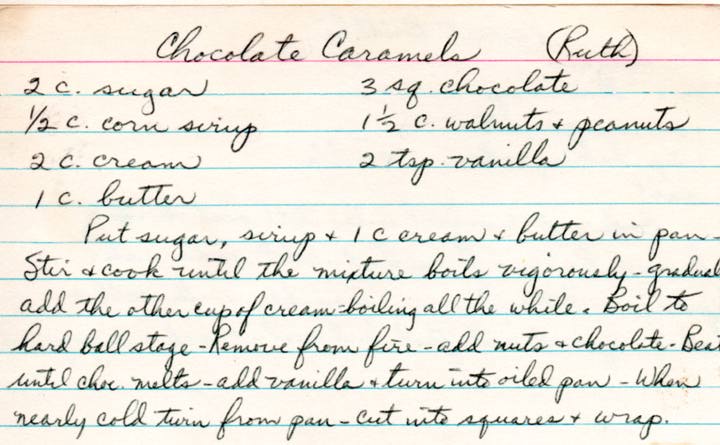 Chocolate Caramels (Ruth)
2 c. sugar 3 sq. chocolate
1/2 c. corn sirup 1 1/2 c. walnuts + peanuts
2 c. cream 2 tsp. vanilla
1 c. butter
Put sugar, sirup + 1 c cream + butter in pan -
Stir + cook until the mixture boils vigorously - gradual
add the other cup of cream - boiling all the while. Boil to
hard ball stage - Remove from fire - add nuts + chocolate - Beat
until choc. melts - add vanilla + turn into oiled pan - When
nearly cold turn from pan - cut into squares + wrap.